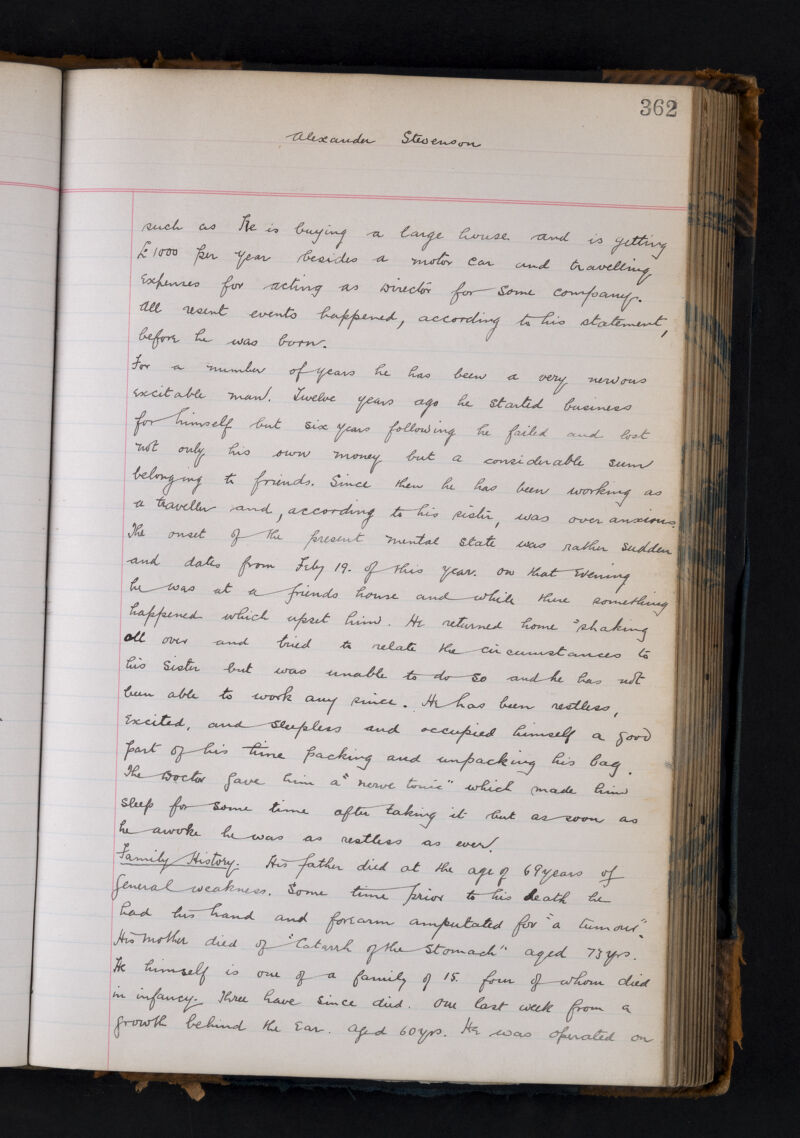 362
Alexander Stevenson
such as He is buying a large house. and is getting
£1000 per year besides a motor car and travelling
Expenses for acting as Director for some company.
All resent events happened, according to his statement,
before he was born.
For a number of years he has been a very nervous
excitable man. Twelve years ago he started business
for himself but six years following he failed and lost
not only his own money but a considerable sum
belonging to friends. Since then he has been working as
a traveller and, according to his sister, was over anxious.
The onset of the present mental state was rather sudden
and dates from Feby 19. of this year. on that Evening
he was at a friends house and while there something
happened which upset him. He returned home "shaking
all over and tried to relate the circumstances to
his sister but was unable to do so and he has not
been able to work any since. He has been restless,
Excited, and sleepless and occupied himself a good
part of his time packing and unpacking his bag.
The Doctor gave him a "nerve tonic" which made him
sleep for some time after taking it but as soon as
he awoke he was as restless as ever.
Family History. His father died at the age of 69 years of
General weakness. Some time prior to his death he
had his hand and forearm amputated for "a tumour".
His mother died of "Catarrh of the Stomach" aged 73 yrs.
He himself is one of a family of 15. four of whom died
in infancy. Three have since died. One last week from a
growth behind the Ear. aged 60 yrs. He was operated on